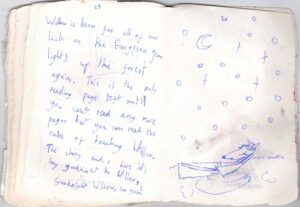 23
Willow is keen for all of his
luck as the Evergreen gem
lights up the forest
again. This is the only
reading page left until
you can't read any more
pages but you can read the
rules of Willow.
The story ends here let's
say goodnight to Willow,
Goodnight Willow, see you!